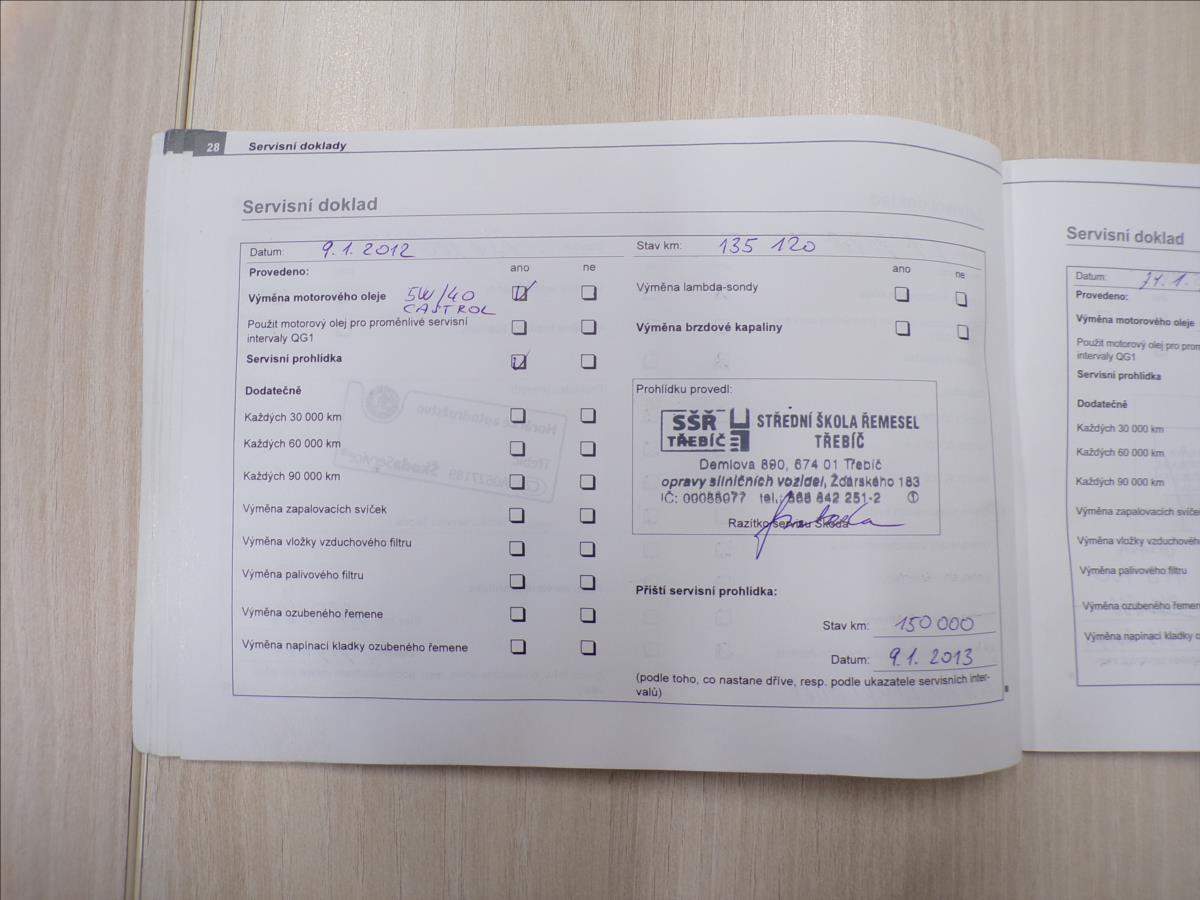 28 Servisní doklady
Servisní doklad
Datum: 9.1.2012
Provedeno: ano ne
Výměna motorového oleje 5W/40
CASTROL
Použit motorový olej pro proměnlivé servisní
intervaly QG1
Servisní prohlídka
Dodatečně
Každých 30 000 km
Každých 60 000 km
Každých 90 000 km
Výměna zapalovacích svíček
Výměna vložky vzduchového filtru
Výměna palivového filtru
Výměna ozubeného řemene
Výměna napínací kladky ozubeného řemene
Stav km: 135 120
ano ne
Výměna lambda-sondy
Výměna brzdové kapaliny
Prohlídku provedl:
SŠŘ
TŘEBÍČ
STŘEDNÍ ŠKOLA ŘEMESEL
TŘEBÍČ
Demlova 890, 674 01 Třebíč
opravy silničních vozidel, Žďárského 183
IČ: 00055077 tel.: 568 842 251-2 ①
Razítko servisu Škoda
Příští servisní prohlídka:
Stav km: 150 000
Datum: 9.1. 2013
(podle toho, co nastane dříve, resp. podle ukazatele servisních inter-
valů)
Servisní doklad
Datum:
Provedeno:
Výměna motorového oleje
Použit motorový olej pro
intervaly QG1
Servisní prohlídka
Dodatečně
Každých 30 000 km
Každých 60 000 km
Každých 90 000 km
Výměna zapalovacích svíček
Výměna vložky vzduchového
Výměna palivového filtru
Výměna ozubeného řemen
Výměna napínací kladky